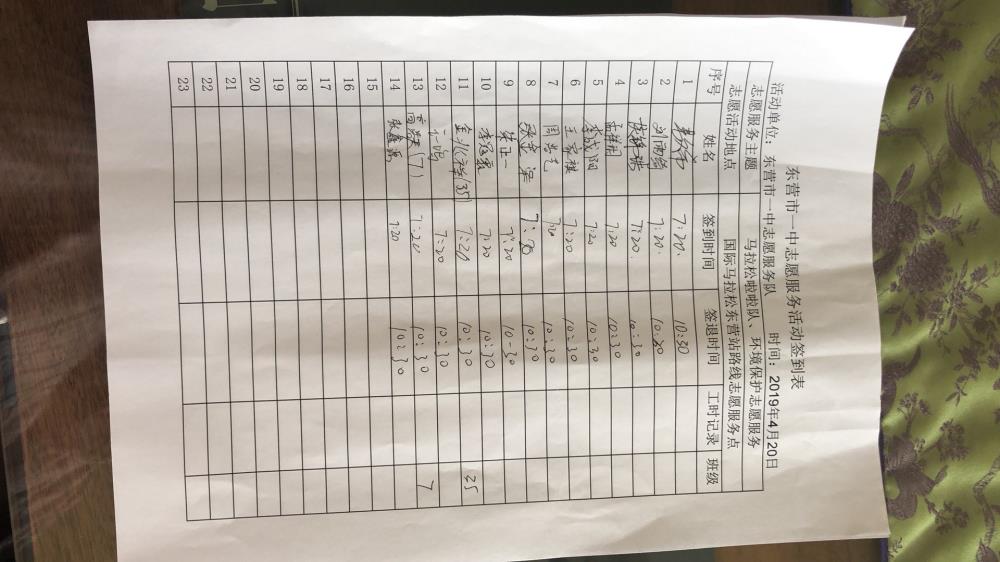 东营市一中志愿服务活动签到表
活动单位：东营市一中志愿服务队 时间：2019年4月20日
志愿服务主题 马拉松啦啦队、环境保护志愿服务
志愿活动地点 国际马拉松东营站路线志愿服务点
序号 姓名 签到时间 签退时间 工时记录 班级
1 7:20. 10:30
2 7:20. 10:30
3 7:20. 10:30
4 7:20 10:30
5 李成阳 7:20 10:30
6 王家祺 7:20 10:30
7 7:20 10:30
8 10:30
9 朱正一 7:20 10-30
10 7:20 10:30
11 (35) 7:20 10:30 35
12 7:20 10:30
13 (7) 7:20 10:30 7
14 张鑫源 7:20 10:30
15
16
17
18
19
20
21
22
23